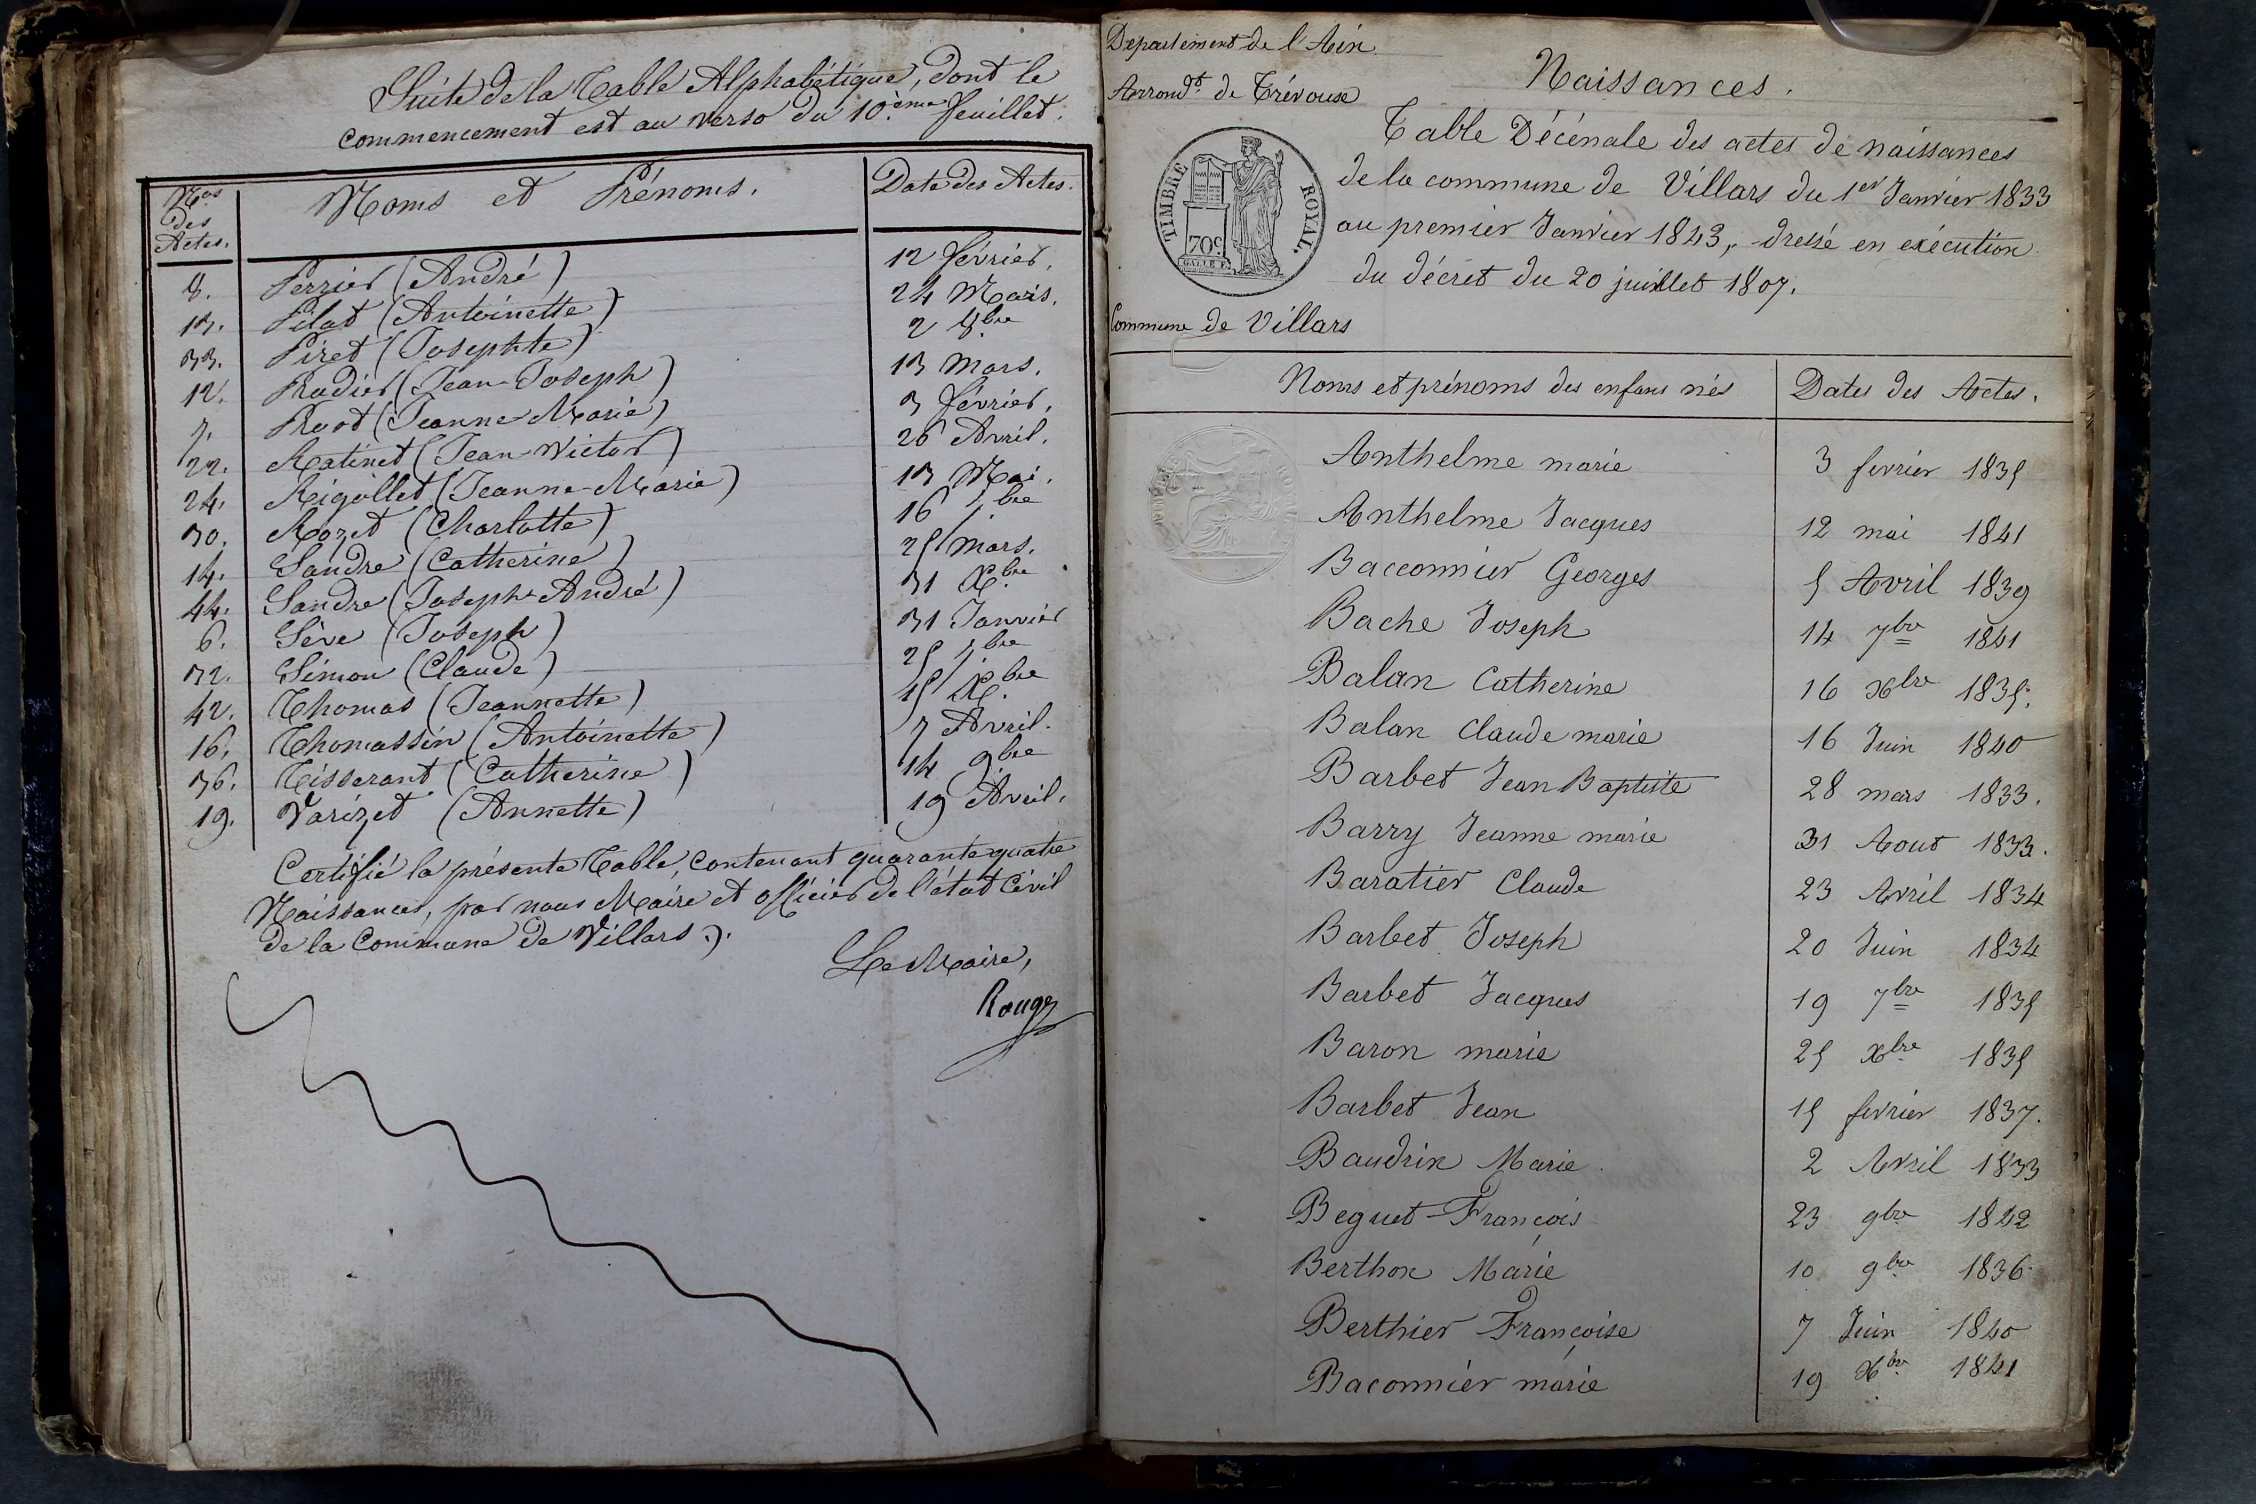 Suite de la Table Alphabétique, dont le
commencement est au verso du 10.ème feuillet.
Nos des Actes. Noms et Prénoms. Date des Actes.
8. Perrier (André) 12 février.
13. Pilat (Antoinette) 24 Mars.
33. Piret (Josephte) 2 8.bre
12. Radier (Jean-Joseph) 13 mars.
7. (Jeanne-Marie) 3 février.
22. Ratinet (Jean-Victor) 26 Avril.
24. Rigollet (Jeanne-Marie) 13 Mai.
30. Rozet (Charlotte) 16 7.bre
14. Sandre (Catherine) 25 mars.
44. Sandre (Joseph-André) 31 X.bre
6. Sève (Joseph) 31 Janvier
32. Simon (Claude) 25 7.bre
42. Thomas (Jeannette) 15 X.bre
16. Thomassin (Antoinette) 7 Avril.
36. Tisserant (Catherine) 14 9.bre
19. Varizet (Annette) 19 Avril.
Certifié la présente Table, contenant quarante quatre
Naissances, par nous Maire et officier de l'état Civil
de la Commune de Villars.
Le Maire,
Rouge
Departement de l'Ain
Arrondt. de Trévoux
Naissances.
TIMBRE ROYAL.
70c
Table Décénale des actes de naissances
de la commune de Villars du 1er Janvier 1833
au premier Janvier 1843, dressé en exécution
du décret du 20 juillet 1807.
Commune de Villars
Noms et prénoms des enfans nés Dates des Actes.
Anthelme marie 3 fevrier 1835
Anthelme Jacques 12 mai 1841
Bacconnier Georges 5 Avril 1839
Bache Joseph 14 7bre 1841
Balan Catherine 16 Xbre 1835.
Balan Claude marie 16 Juin 1840
Barbet Jean Baptiste 28 mars 1833.
Barry Jeanne marie 31 Aout 1833.
Baratier Claude 23 Avril 1834
Barbet Joseph 20 Juin 1834
Barbet Jacques 19 7bre 1835
Baron marie 25 xbre 1835
Barbet Jean 15 fevrier 1837.
Baudrin Marie 2 Avril 1833
Beguet François 23 9bre 1842
Berthon Marie 10 9bre 1836
Berthier Françoise 7 Juin 1840
Baconnier marie 19 Xbre 1841